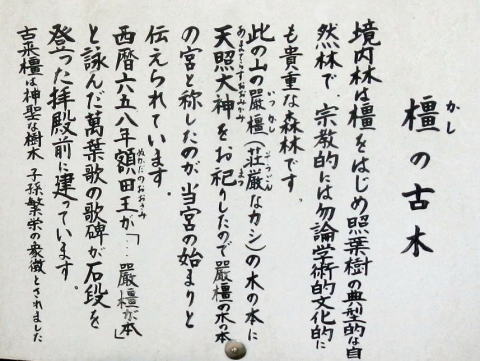 橿の古木
かし
境内林は橿をはじめ照葉樹の典型的な自
然林で、宗教的には勿論学術的文化的に
も貴重な森林です。
此の山の嚴橿(荘厳なカシ)の木の本に
いつかし
そうごん
天照大神をお祀りしたので嚴橿の木の本
あまてらすおおみかみ
まつ
の宮と称したのが当宮の始まりと
伝えられています。
西暦六五八年額田王が「…嚴橿が本」
ぬかだのおおきみ
と詠んだ萬葉歌の歌碑が石段を
登った拝殿前に建っています。
古来橿は神聖な樹木 子孫繁栄の象徴とされました